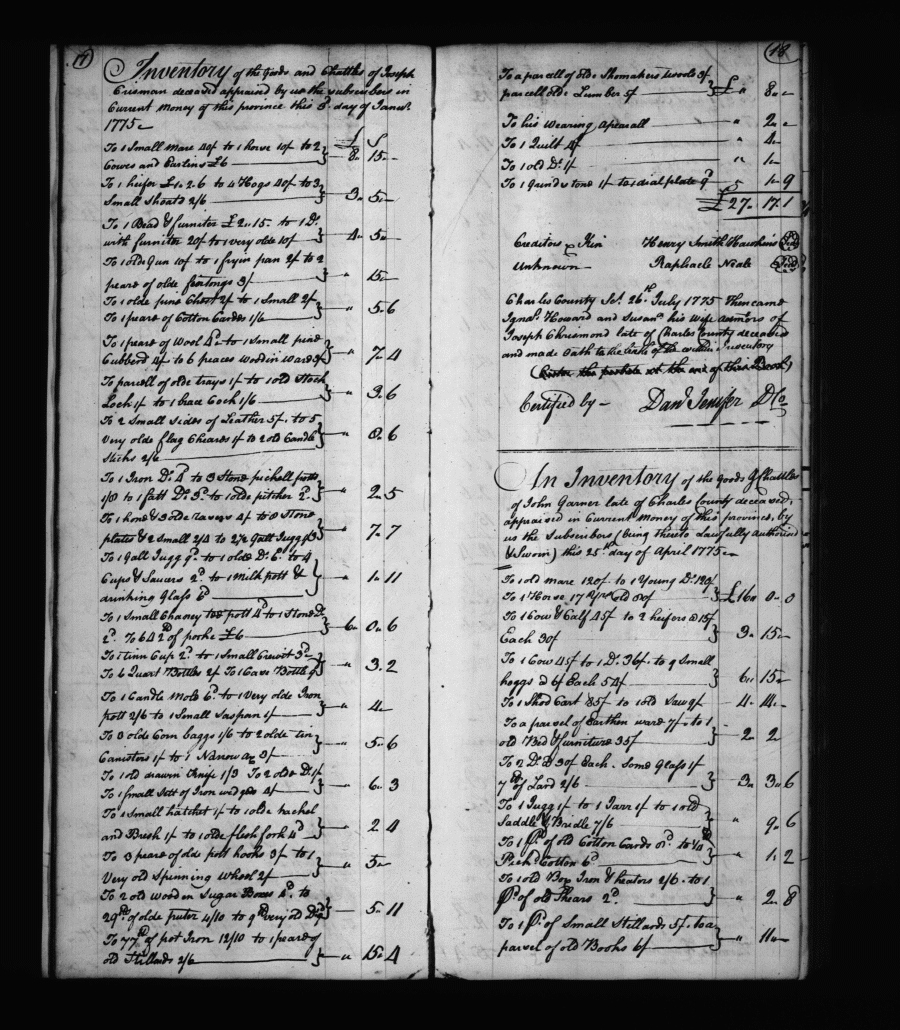 17
Inventory of the Goods and Chattles of Joseph
Crisman deceased appraised by us the subscribers in
Current Money of this province this 3d. day of Janry.
1775
£ S
To 1 Small Mare 40/ to 1 horse 10/ to 2
Cowes and Earlins £6 8 15
To 1 heifer £1.2.6 to 4 Hogs 40/ to 3
Small Shoats 2/6 3 5
To 1 Bead & furniter £2.15. to 1 Do.
with furniter 20/ to 1 very olde 10/ 4 5
To 1 olde Gun 10/ to 1 fryin pan 2/ to 2
peare of olde 3/ " 15
To 1 olde pine Chest 2/ to 1 Small 2/
To 1 peare of Cotton Cardes 1/6 " 5.6
To 1 peare of Wool 4d. to 1 Small pine
Cubberd 4/ to 6 peaces woodin ware 3/ " 7.4
To parcell of olde trays 1/ to 1 old Stock
Lock 1/ to 1 brace Cock 1/6 " 3.6
To 2 Small Sides of Leather 5/. to 5
Very olde flag Cheares 1/ to 2 old Candle
Sticks 2/6 " 8.6
To 1 Iron Do. 4d to 3 Stone pickell potts
1/8 to 1 fatt Do. 3d. to 1 olde pitcher 2d. " 2.5
To 1 hone & 3 olde rasers 4/ to 8 Stone
plates & 2 Small 2/4 to 2 1/2 Gall Juggs " 7.7
To 1 Gall Jugg 9d. to 1 olde Do. 6d. to 4
Cups & Saucers 2d. to 1 Milk pott &
drinking Glass 6d " 1.11
To 1 Small Chaney tee pott 4d to 1 Stone Do
2d. To of porke £6 6 0.6
To 1 tinn Cup 2d. to 1 Small Crewit 3d.
To 6 Quart Bottles 2/ To 1 Case Bottle 9d " 3.2
To 1 Candle Mole 6d. to 1 Very olde Iron
pott 2/6 to 1 Small Saspan 1/ " 4
To 3 olde Corn baggs 1/6 to 2 olde tin
Canisters 1/ to 1 Narrow ax 3/ " 5.6
To 1 old drawin Knife 1/3 To 2 olde Do. 1/
To 1 Small Sett of Iron wedges 4/ 6 3
To 1 Small hatchet 1/ to 1 olde hachel
and Brush 1/ to 1 olde flesh fork 4d 2 4
To 3 peare of olde pott hooks 3/ to 1
Very old Spinning Wheel 2/ " 5
To 2 old wooden Sugar Boxes 4d. to
29lb. of olde puter 4/10 to 9lb very old Do. 9d 5.11
To 77lb of pot Iron 12/10 to 1 peare of
old Stillards 2/6 " 15.4
18
To a parcell of olde Shomakers tools 3/
parcell olde Lumber 5/ £ " 8
To his wearing apearall " 2
To 1 Quilt 4/ " 4
To 1 old Do. 1/ " 1
To 1 Grindstone 1/ to 1 dial plate 9d " 1 9
£27. 17. 1
Creditors & Kin Henry Smith Hawkins Seal
unknown Raphaele Neale Seal
Charles County Sct. 26th July 1775 Then came
Ignas. Howard and Susana his wife admors of
Joseph Chrismond late of Charles County deceased
and made Oath to the truth of the within Inventory
Certified by Danl Jenifer D Co
An Inventory of the Goods & Chattles
of John Garner late of Charles County deceased,
appraised in Current Money of this province, by
us the Subscribers (being thereto lawfully authorised
& Sworn) this 25th day of April 1775
To 1 old mare 120/ to 1 Young Do. 120/
To 1 Horse 17 Yrs. old 80/ £16 0 0
To 1 Cow & Calf 45/ to 2 heifers @ 15/
Each 30/ 3 15
To 1 Cow 45/ to 1 Do. 36/. to 9 Small
hoggs @ 6/ Each 54/ 6 15
To 1 Shod Cart 85/ to 1 old Saw 9/ 4 14
To a parcel of Earthen ware 7/ to 1
old Bed & furniture 35/ 2 2
To 2 Do. @ 30/ Each. Some Glass 1/
7lb of Lard 2/6 3 3 6
To 1 Jugg 1/ to 1 Jarr 1/ to 1 old
Saddle & Bridle 7/6 " 9 6
To 1 Pr. of old Cotton Cards 8d. to 1/4
Pickd. Cotton 6d. " 1 2
To 1 old Box Iron & heators 2/6. to 1
Pr. of old Shears 2d. " 2 8
To 1 Pr. of Small Stillards 5/. to a
parcel of old Books 6/ " 11